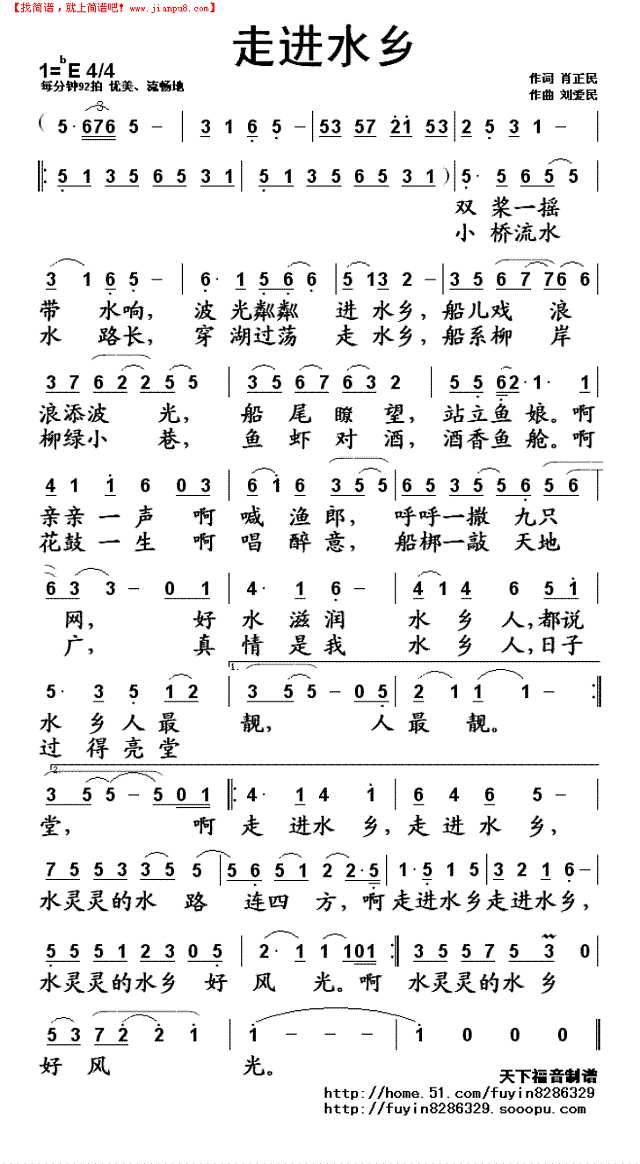 【找简谱，就上简谱吧！www.jianpu8.com】
走进水乡
1=ᵇE 4/4
每分钟92拍 优美、流畅地
作词 肖正民
作曲 刘爱民
(5· 676 5 - | 3 1 6 5 - | 53 57 21 53 | 2 5 3 1 -
5 1 3 5 6 5 3 1 | 5 1 3 5 6 5 3 1 ) 5· 5 6 5 5
双 桨一摇
小 桥流水
3 1 6 5 - | 6· 1 5 6 6 | 5 13 2 - | 3 5 6 7 76 6
带 水响，波 光粼粼 进 水乡，船儿戏 浪
水 路长，穿 湖过荡 走 水乡，船系柳 岸
3 7 6 2 2 5 5 | 3 5 6 7 6 3 2 | 5 5 62· 1· 1
浪添波 光，船 尾 瞭 望，站立鱼 娘。啊
柳绿小 巷，鱼 虾 对 酒，酒香鱼 舱。啊
4 1 1 6 0 3 | 6 1 6 3 5 5 | 6 5 3 5 5 6 5 6
亲亲 一 声 啊 喊 渔 郎，呼呼一撒 九只
花鼓 一 生 啊 唱 醉 意，船梆一敲 天地
6 3 3 - 0 1 | 4· 1 6 - | 4 1 4 6 5 1
网，好 水 滋润 水 乡 人，都说
广，真 情 是我 水 乡 人，日子
5· 3 5 1 2 | 1. 3 5 5 - 0 5 | 2 1 1 1 - :
水 乡人最 靓，人 最 靓。
过 得亮堂
2. 3 5 5 - 5 0 1 : 4· 1 4 1 | 6 4 6 5 -
堂，啊 走 进水 乡，走 进 水 乡，
7 5 5 3 3 5 5 | 5 6 5 1 2 2·5 | 1·5 1 5 | 3 2 1 6 -
水灵灵的水 路 连四 方，啊走进水乡走进水乡，
5 5 5 1 2 3 0 5 | 2· 1 1 101 : 3 5 5 7 5 3 0
水灵灵的水乡 好 风 光。啊 水灵灵的水 乡
5 3 7 2 2 1 | 1 - - - | 1 0 0 0
好 风 光。
天下福音制谱
http://home.51.com/fuyin8286329
http://fuyin8286329.sooopu.com